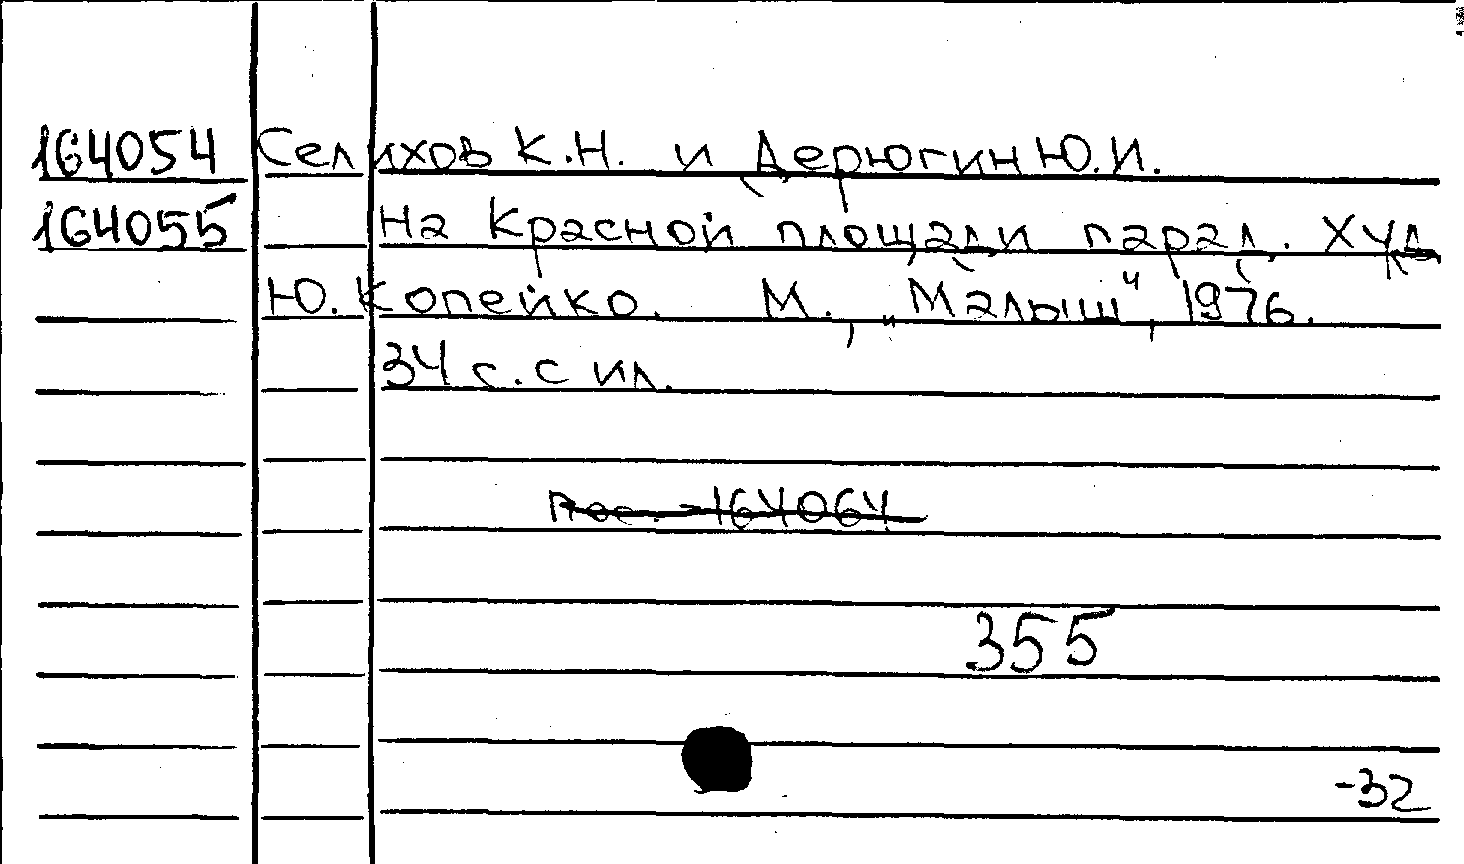 164054 Селихов К.Н. и Дерюгин Ю.И.
164055 На Красной площади парад. Худ.
Ю. Копейко. М., „Малыш", 1976.
34 с. с ил.
164064
355
-32